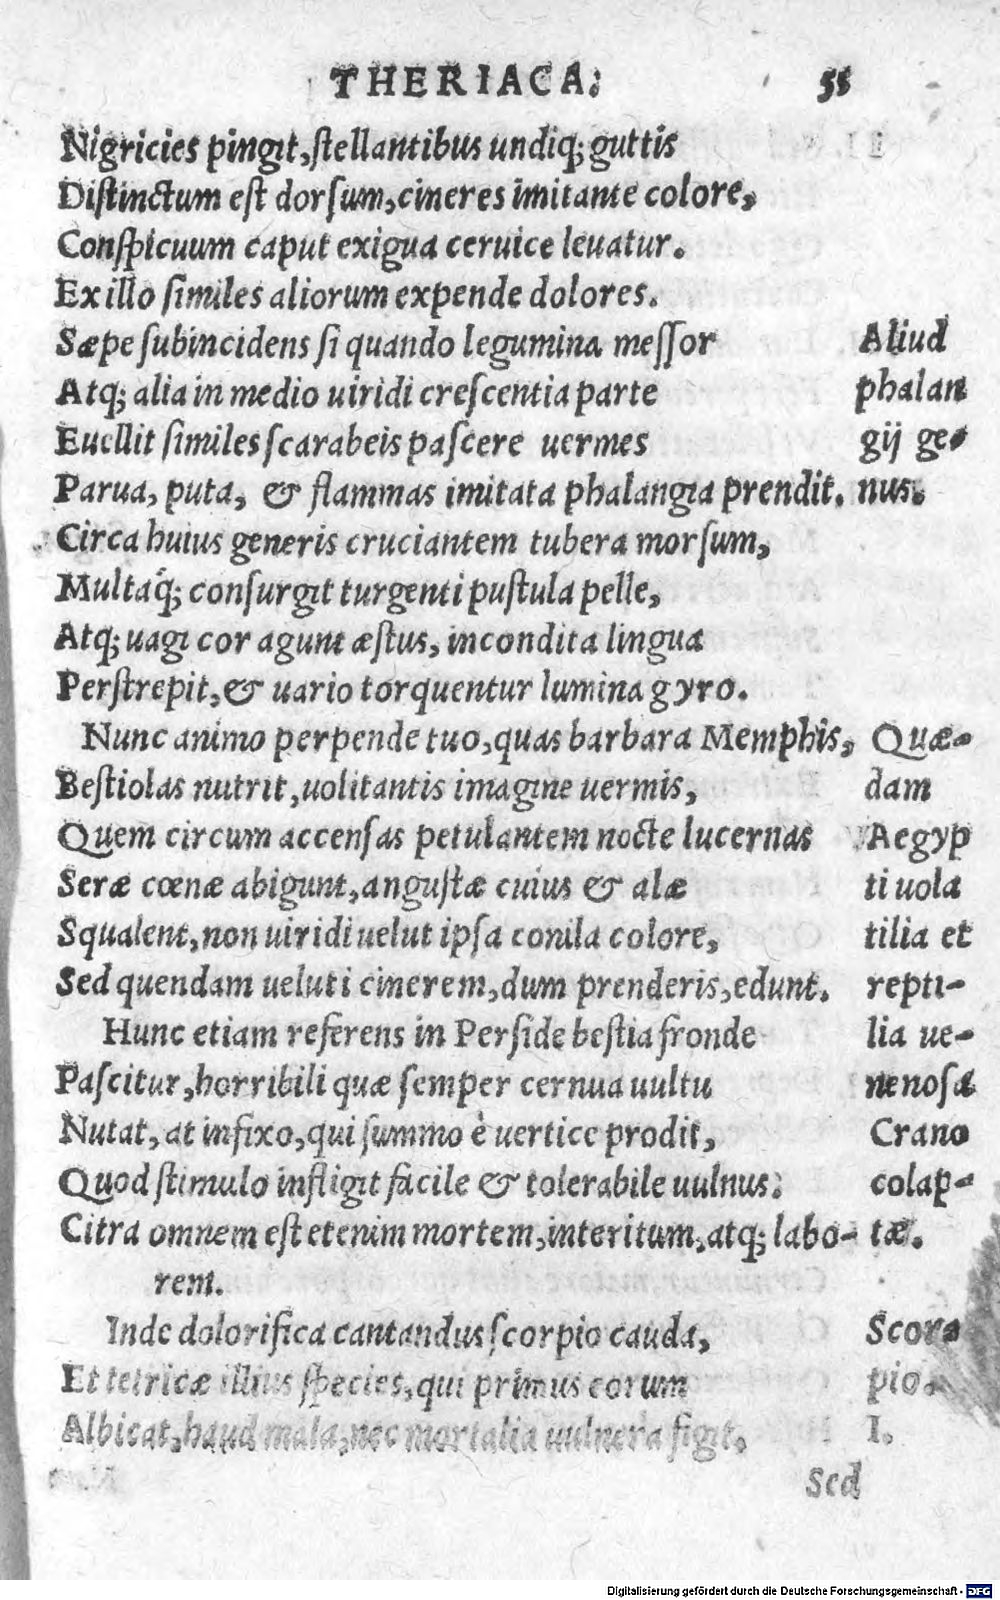 THERIACA: 55
Nigricies pingit, stellantibus undiq; guttis
Distinctum est dorsum, cineres imitante colore,
Conspicuum caput exigua ceruice leuatur.
Ex illo similes aliorum expende dolores.
Sæpe subincidens si quando legumina messor Aliud
Atq; alia in medio uiridi crescentia parte phalan
Euellit similes scarabeis pascere uermes gij ge-
Parua, puta, & flammas imitata phalangia prendit. nus.
Circa huius generis cruciantem tubera morsum,
Multaq́; consurgit turgenti pustula pelle,
Atq; uagi cor agunt æstus, incondita lingua
Perstrepit, & uario torquentur lumina gyro.
Nunc animo perpende tuo, quas barbara Memphis, Quæ-
Bestiolas nutrit, uolitantis imagine uermis, dam
Quem circum accensas petulantem nocte lucernas Aegyp
Seræ cœnæ abigunt, angustæ cuius & alæ ti uola
Squalent, non uiridi uelut ipsa conila colore, tilia et
Sed quendam ueluti cinerem, dum prenderis, edunt. repti-
Hunc etiam referens in Perside bestia fronde lia ue-
Pascitur, horribili quæ semper cernua uultu nenosæ
Nutat, at infixo, qui summo è uertice prodit, Crano
Quod stimulo infligit facile & tolerabile uulnus: colap-
Citra omnem est etenim mortem, interitum, atq; labo- tæ.
rem.
Inde dolorifica cantandus scorpio cauda, Scor
Et tetricæ illius species, qui primus eorum pio.
Albicat, haud mala, nec mortalia uulnera figit. I.
Sed
Digitalisierung gefördert durch die Deutsche Forschungsgemeinschaft - DFG